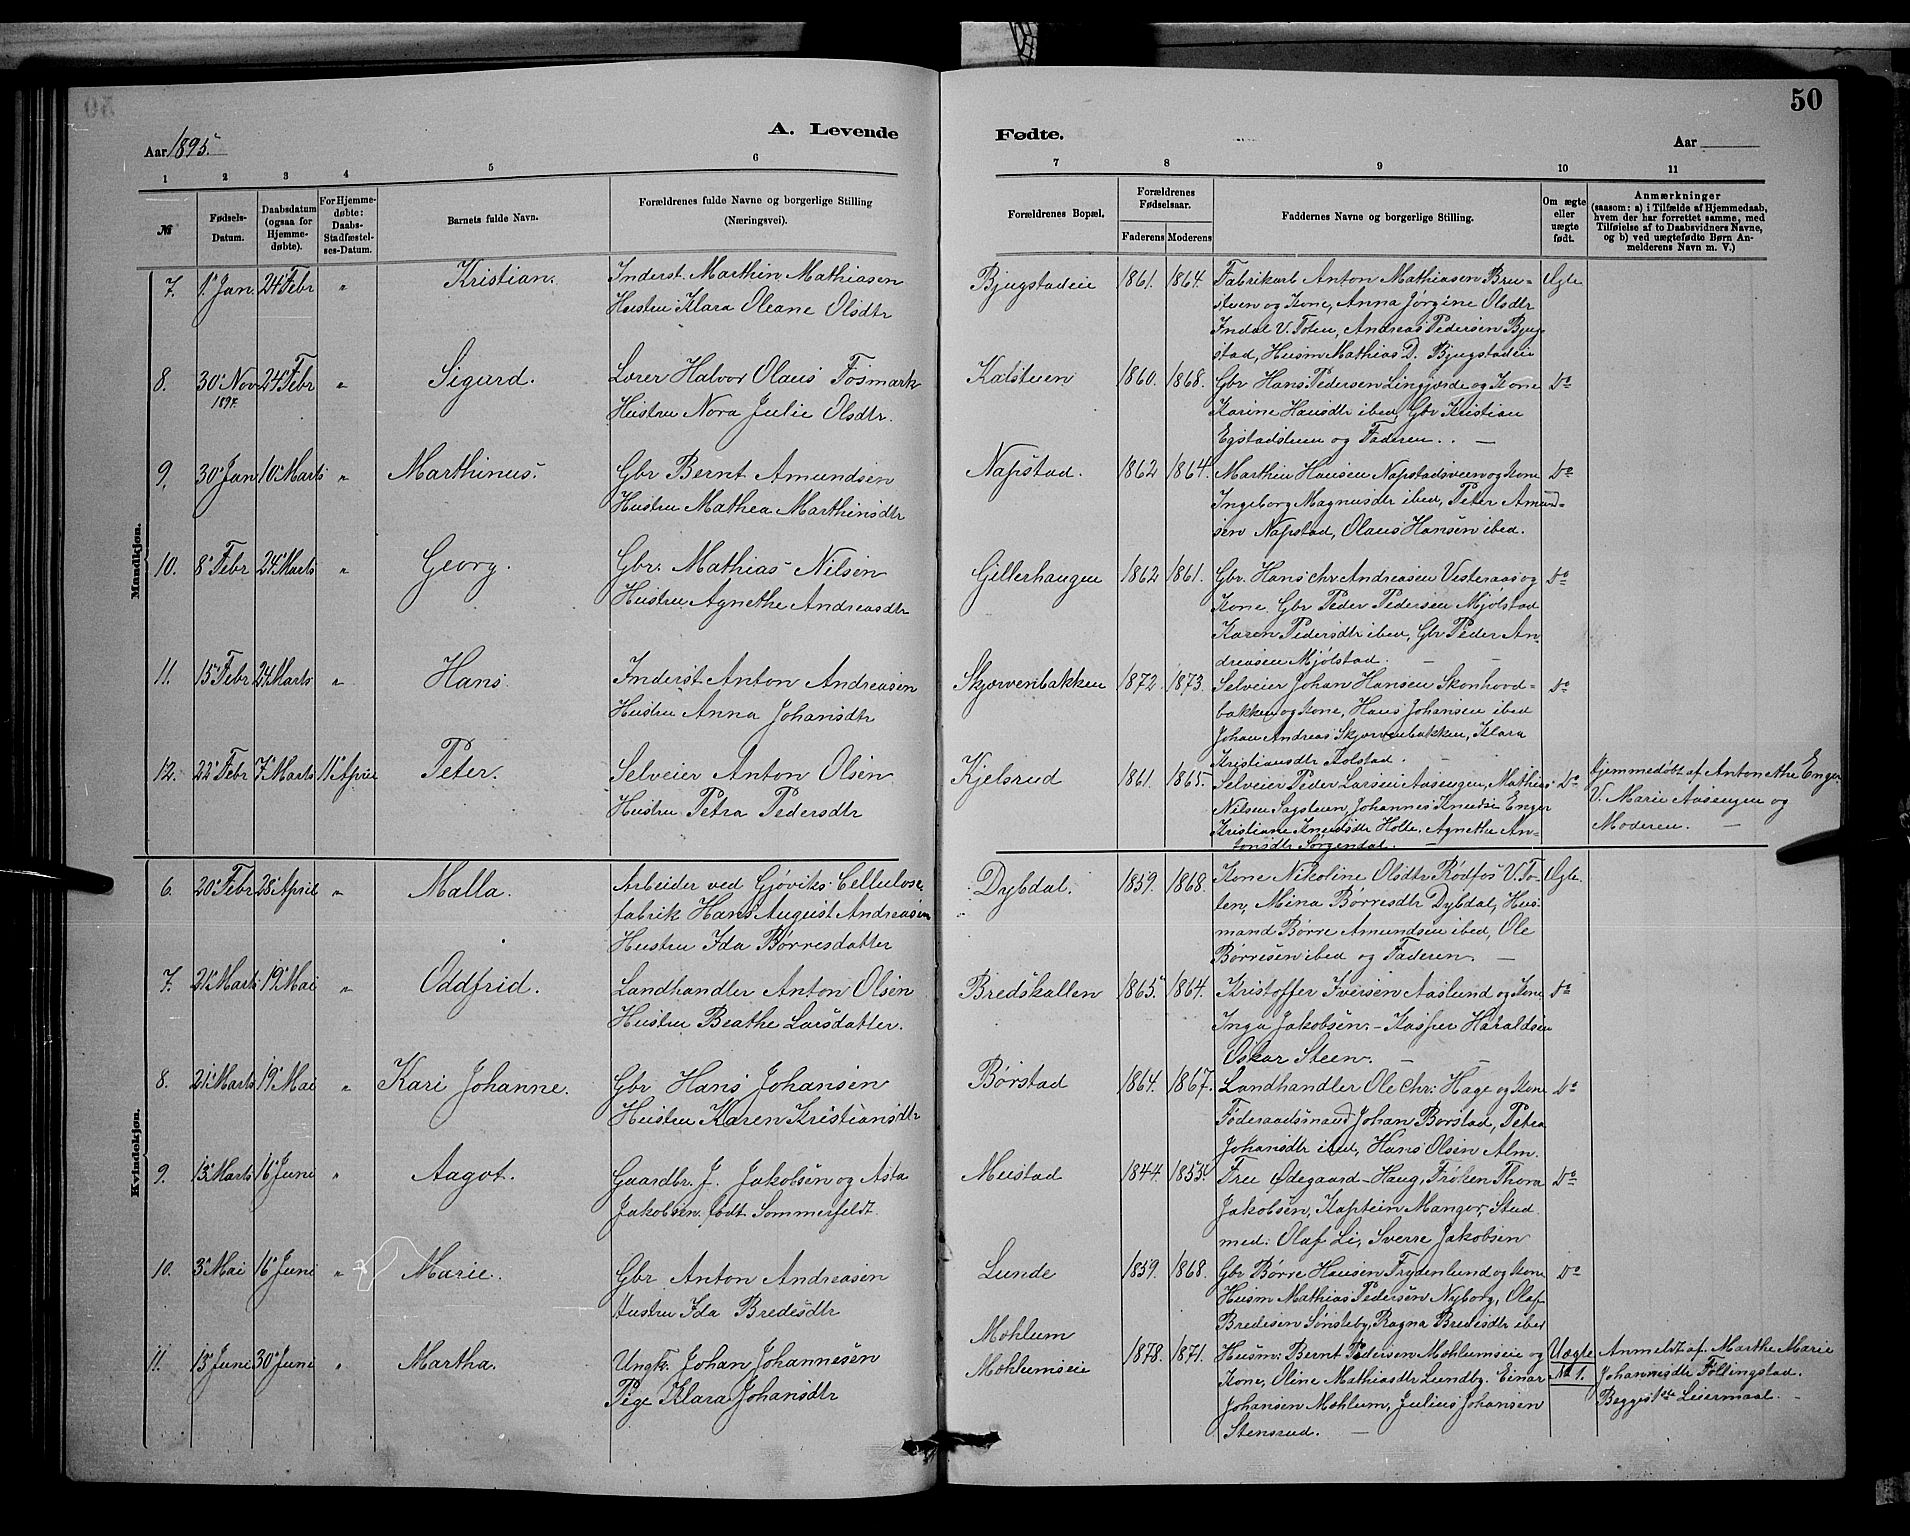 50
A. Levende Fødte.
Aar 1895.
Aar
1 2 3 4 5 6 7 8 9 10 11
№
Fødsels-Datum.
Daabsdatum (ogsaa for Hjemmedøbte).
For Hjemmedøbte: Daabs-Stadfæstelses-Datum.
Barnets fulde Navn.
Forældrenes fulde Navne og borgerlige Stilling (Næringsvei).
Forældrenes Bopæl.
Forældrenes Fødselsaar.
Faderens Moderens
Faddernes Navne og borgerlige Stilling.
Om ægte eller uægte født.
Anmærkninger
(saasom: a) i Tilfælde af Hjemmedaab, hvem der har forrettet samme, med Tilføielse af to Daabsvidners Navne, og b) ved uægtefødte Børn Anmelderens Navn m. V.)
Mandkjøn.
7. 1' Jan 24' Febr " Kristian. Inderst Marthin Mathiasen
Hustru Klara Oleane Olsdtr
Bjugstadeie 1861. 1864. Fabrikarb Anton Mathiasen Bru- Ægte
stuen og Kone, Anna Jørgine Olsdtr
Indal V. Toten, Andreas Pedersen Bjug-
stad, Husm Mathias D. Bjugstadeie
8. 30' Nov 24' Febr " Sigurd. Lærer Halvor Olaus Fosmark
1894. Hustru Nora Julie Olsdtr.
Kalstuen 1860. 1868. Gbr Hans Pedersen Lingjærde og Kone Do
Karine Hansdtr ibed, Gbr Kristian
Egstadstuen og Faderen.. —
9. 30' Jan 10' Marts " Marthinus. Gbr Bernt Amundsen
Hustru Mathea Marthinsdtr
Napstad. 1862 1864. Marthin Hansen Napstadsveen og Kone Do
Ingeborg Magnusdtr ibed, Peter Amund-
sen Napstad, Olaus Hansen ibed.
10. 8' Febr 24' Marts " Georg. Gbr. Mathias Nilsen
Hustru Agnethe Andreasdtr
Gillerhaugen 1862 1861. Gbr. Hans Chr Andreasen Vesteraas og Do
Kone. Gbr Peder Pedersen Mjølstad
Karen Pedersdtr ibed, Gbr Peder An-
dreasen Mjølstad. —
11. 15' Febr 24' Marts " Hans. Inderst Anton Andreasen
Hustru Anna Johansdtr
Skjærvenbakken 1872. 1873. Selveier Johan Hansen Skonhovd- Do
bakken og Kone, Hans Johansen ibed
Johan Andreas Skjærvenbakken, Klara
Kristiansdtr Kolstad. —
12. 22' Febr 7' Marts 11' April Peter. Selveier Anton Olsen
Hustru Petra Pedersdtr
Kjelsrud 1861. 1865. Selveier Peder Larsen Aasengen, Mathias Do Hjemmedøbt af Antonethe Enger.
Nilsen Sagstuen, Johannes Knudsen Enger V. Marie Aasengen og
Kristiane Knudsdtr Holte, Agnethe An- Moderen. —
tonsdtr Sørgendal. —
Kvindekjøn.
6. 20' Febr 28' April " Malla. Arbeider ved Gjøviks Cellulose-
fabrik Hans August Andreasen
Hustru Ida Børresdatter
Dybdal. 1859. 1868. Kone Nikoline Olsdtr Rødfos V. To- Ægte
ten, Mina Børresdtr Dybdal, Hus-
mand Børre Amundsen ibed, Ole
Børresen ibed og Faderen. —
7. 21' Marts 19' Mai " Oddfrid. Landhandler Anton Olsen
Hustru Beathe Larsdatter.
Bredskallen 1865. 1864. Kristoffer Iversen Aaslund og Kone Do
Inga Jakobsen. - Kasper Haraldsen
Oskar Steen. —
8. 21' Marts 19' Mai " Kari Johanne. Gbr Hans Johansen
Hustru Karen Kristiansdtr
Børstad 1864. 1867. Landhandler Ole Chr. Hage og Kone Do
Føderaadsmand Johan Børstad, Petra
Johansdtr ibed, Hans Olsen Alm.
9. 13' Marts 16' Juni " Aagot. Gaardbr. J. Jakobsen og Asta
Jakobsen født Sommerfeldt.
Mustad 1844. 1853. Fru Ødegaard-Haug, Frøken Thora Do
Jakobsen, Kaptein Mangor, Stud.
med: Olaf Li, Sverre Jakobsen
10. 3' Mai 16' Juni " Marie. Gbr Anton Andreasen
Hustru Ida Bredesdtr
Lunde 1859. 1868. Gbr Børre Hansen Frydenlund og Kone Do
Husm Mathias Pedersen Nyborg, Olaf
Bredesen Sønsteby, Ragna Bredesdtr ibed
11. 13' Juni 30' Juni " Martha. Ungk: Johan Johannesen
Pige Klara Johansdtr
Mæhlum
Mæhlumseie
1878. 1871. Husm: Bernt Pedersen Mæhlumseie og Uægte Anmeldt af Marthe Marie
Kone, Oline Mathiasdtr Lundby. Einar № 1. Johannesdtr Føllingstad.
Johansen Mæhlum, Julius Johansen Begges 1ste Leiermaal. —
Stensrud. —